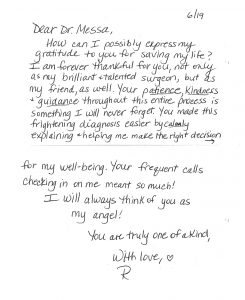 6/19
Dear Dr. Messa,
How can I possibly express my
gratitude to you for saving my life?
I am forever thankful for you, not only
as my brilliant + talented surgeon, but as
my friend, as well. Your patience, kindness
+ guidance throughout this entire process is
something I will never forget. You made this
frightening diagnosis easier by calmly
explaining + helping me make the right decision →
for my well-being. Your frequent calls
checking in on me meant so much!
I will always think of you as
my angel!
You are truly one of a kind,
With love, ♡
R